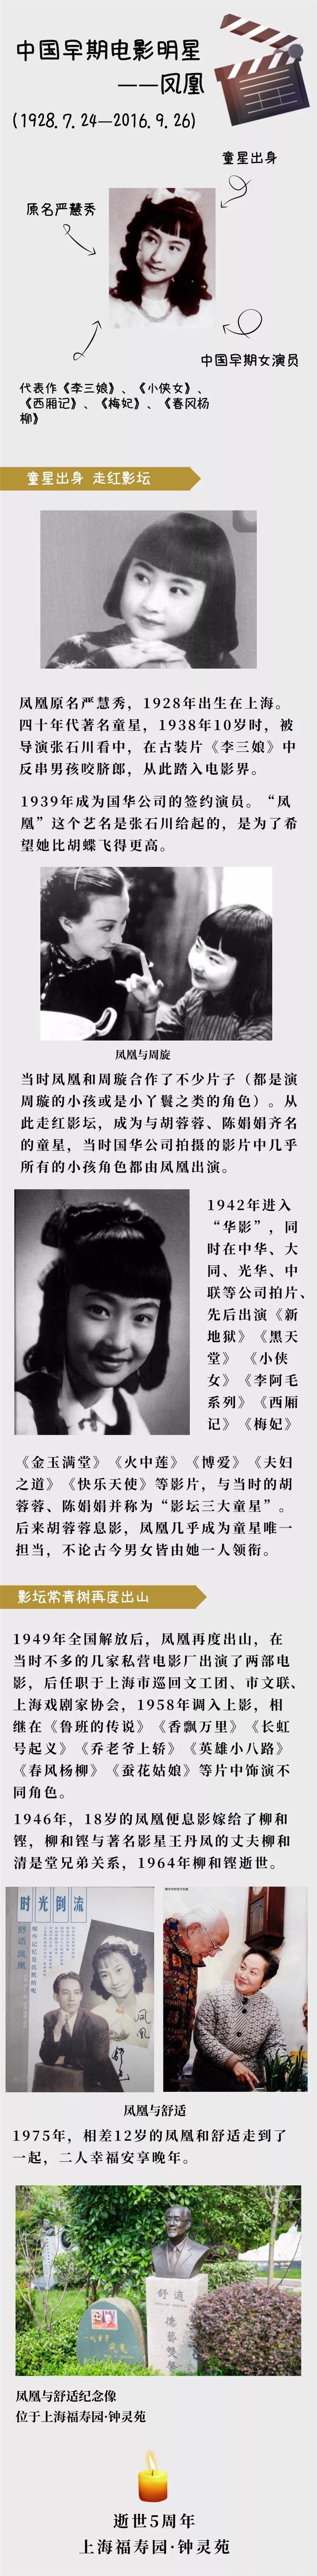 中国早期电影明星
——凤凰
(1928.7.24—2016.9.26)
童星出身
原名严慧秀
中国早期女演员
代表作《李三娘》、《小侠女》、
《西厢记》、《梅妃》、《春风杨
柳》
童星出身 走红影坛
凤凰原名严慧秀，1928年出生在上海。
四十年代著名童星，1938年10岁时，被
导演张石川看中，在古装片《李三娘》中
反串男孩咬脐郎，从此踏入电影界。
1939年成为国华公司的签约演员。“凤
凰”这个艺名是张石川给起的，是为了希
望她比胡蝶飞得更高。
凤凰与周旋
当时凤凰和周璇合作了不少片子（都是演
周璇的小孩或是小丫鬟之类的角色）。从
此走红影坛，成为与胡蓉蓉、陈娟娟齐名
的童星，当时国华公司拍摄的影片中几乎
所有的小孩角色都由凤凰出演。
1942年进入
“华影”，同
时在中华、大
同、光华、中
联等公司拍片、
先后出演《新
地狱》《黑天
堂》 《小侠
女》《李阿毛
系列》《西厢
记》《梅妃》
《金玉满堂》《火中莲》《博爱》《夫妇
之道》《快乐天使》等影片，与当时的胡
蓉蓉、陈娟娟并称为“影坛三大童星”。
后来胡蓉蓉息影，凤凰几乎成为童星唯一
担当，不论古今男女皆由她一人领衔。
影坛常青树再度出山
1949年全国解放后，凤凰再度出山，在
当时不多的几家私营电影厂出演了两部电
影，后任职于上海市巡回文工团、市文联、
上海戏剧家协会，1958年调入上影，相
继在《鲁班的传说》《香飘万里》《长虹
号起义》《乔老爷上轿》《英雄小八路》
《春风杨柳》《蚕花姑娘》等片中饰演不
同角色。
1946年，18岁的凤凰便息影嫁给了柳和
铿，柳和铿与著名影星王丹凤的丈夫柳和
清是堂兄弟关系，1964年柳和铿逝世。
时光倒流
舒适凤凰
哪些记忆是沉默的呢
凤凰
凤凰与舒适
1975年，相差12岁的凤凰和舒适走到了
一起，二人幸福安享晚年。
舒適
德藝雙馨
凤凰与舒适纪念像
位于上海福寿园·钟灵苑
逝世5周年
上海福寿园·钟灵苑